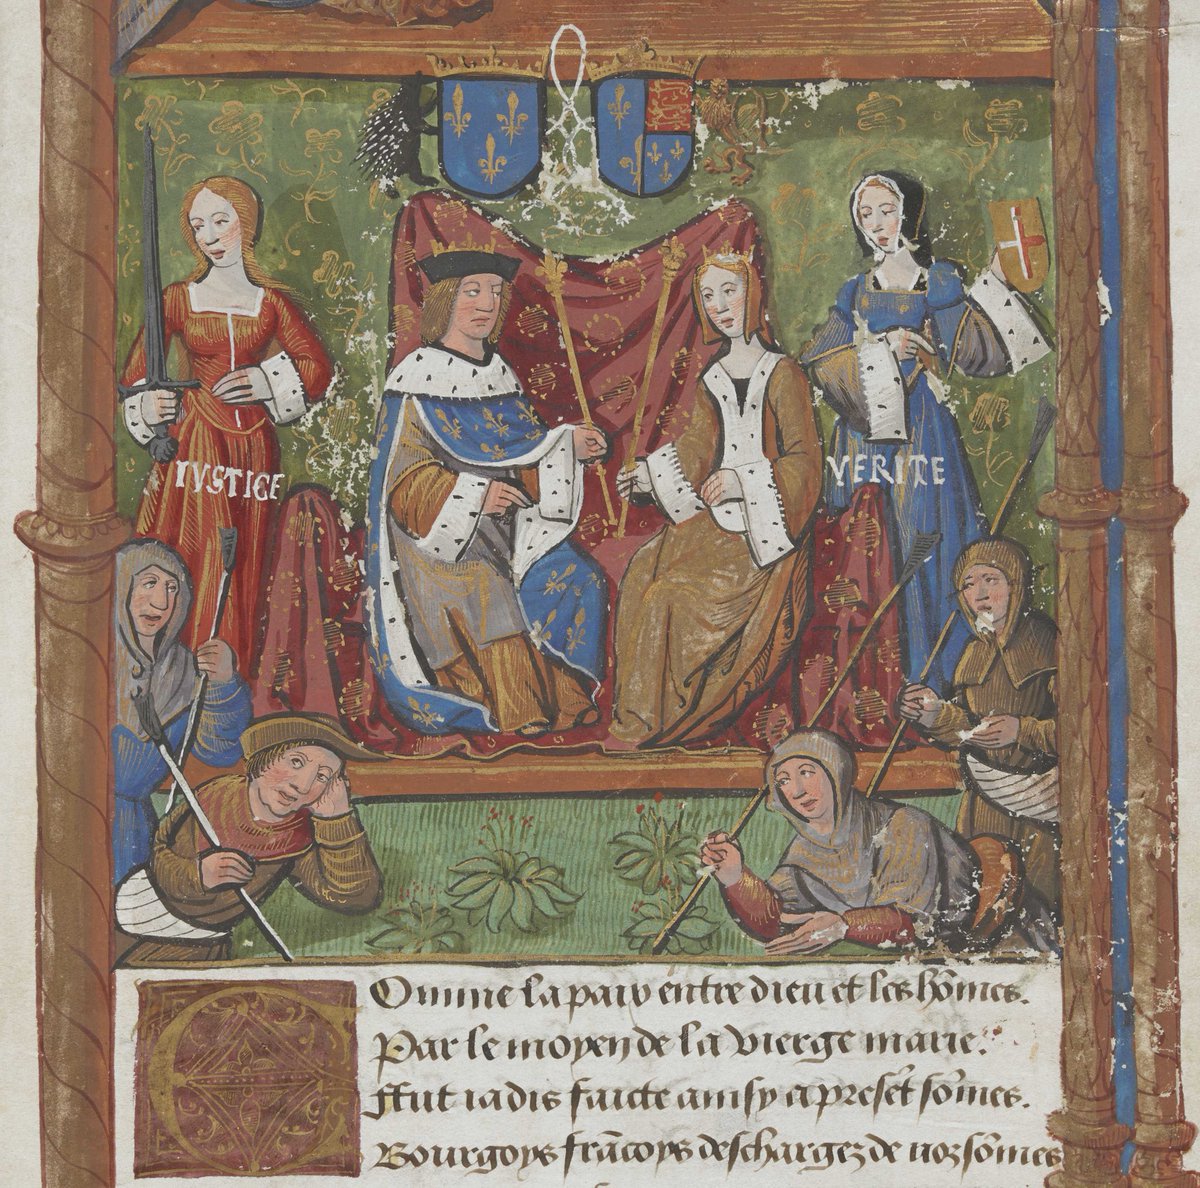 IUSTICE
VERITE
Comme la paix entre dieu et les hõmes.
Par le moyen de la vierge marie.
Ffut iadis faicte ainsy a presẽt sõmes.
Bourgoys frãcoys deschargez de noz sõmes